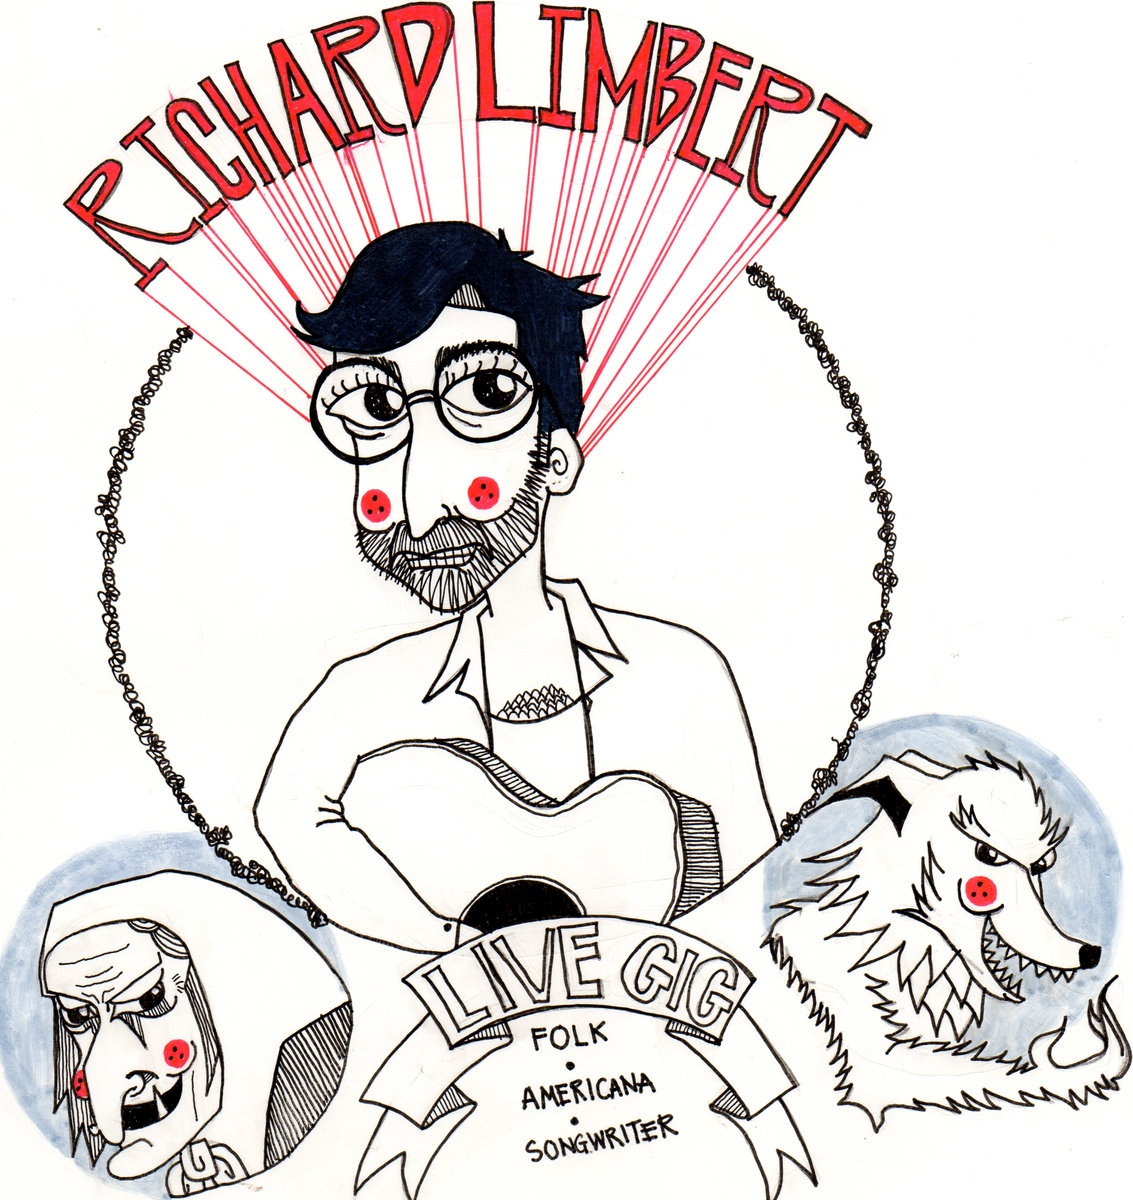 RICHARD LIMBERT
LIVE GIG
FOLK
•
AMERICANA
•
SONGWRITER